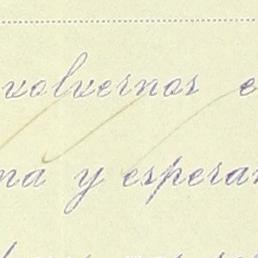 volvernos e
na y esperan